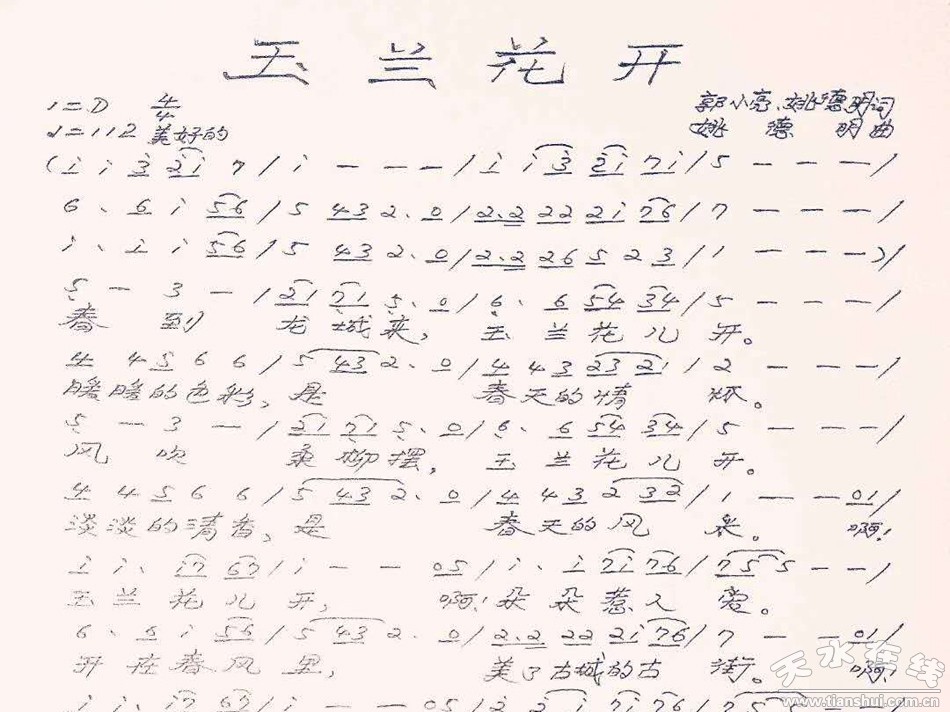 玉兰花开
1=D 4/4 郭小亮、姚德明词
♩=112 美好的 姚德明曲
(i i 3 2i 7 / i - - - / i i 3 2i 7i / 5 - - - /
6. 6 i 56 / 5 43 2. 0 / 2.2 22 2i 76 / 7 - - - /
i. i i 56 / 5 43 2. 0 / 2.2 26 5 2 3 / 1 - - -) /
5 - 3 - / 21 71 5. 0 / 6. 6 54 34 / 5 - - - /
春到龙城来，玉兰花儿开。
4 4 5 6 6 / 5 43 2. 0 / 4 4 3 23 21 / 2 - - - /
暖暖的色彩，是春天的情怀。
5 - 3 - / 21 71 5. 0 / 6. 6 54 34 / 5 - - - /
风吹柔柳摆，玉兰花儿开。
4 4 5 6 6 / 5 43 2. 0 / 4 4 3 2 32 / 1 - - 01 /
淡淡的清香，是春天的风来。啊！
i i. i7 67 / i - - 05 / i. i 7i 76 / 75 5 - - /
玉兰花儿开，啊！朵朵惹人爱。
6. 6 i 56 / 5 43 2. 0 / 2.2 22 2i 76 / 7 - - 01 /
开在春风里，美了古城的古街。啊！
天水在线
www.tianshui.com.cn